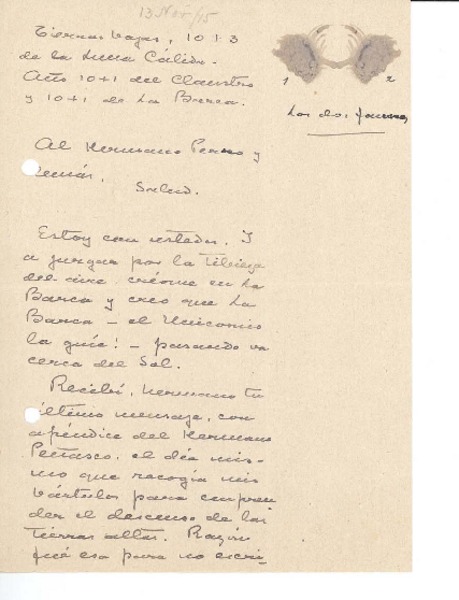 13 Nov/45
Tierras bajas, 10+3
de la Luna Cálida.
Año 10+1 del Claustro
y 10+1 de La Barca.
1 2
Los dos
Al Hermano Perro y
demás.
Salud.
Estoy con ustedes. Y
a juzgar por la tibieza
del aire créome en La
Barca y creo que La
Barca – el Unicornio
la guíe! – pasando va
cerca del Sol.
Recibí, Hermano tu
último mensaje, con
apéndice del Hermano
Peñasco, el día mis-
mo que recogía mis
bártulos para empren
der el descenso de las
tierras altas. Razón
qué esa para no escri-